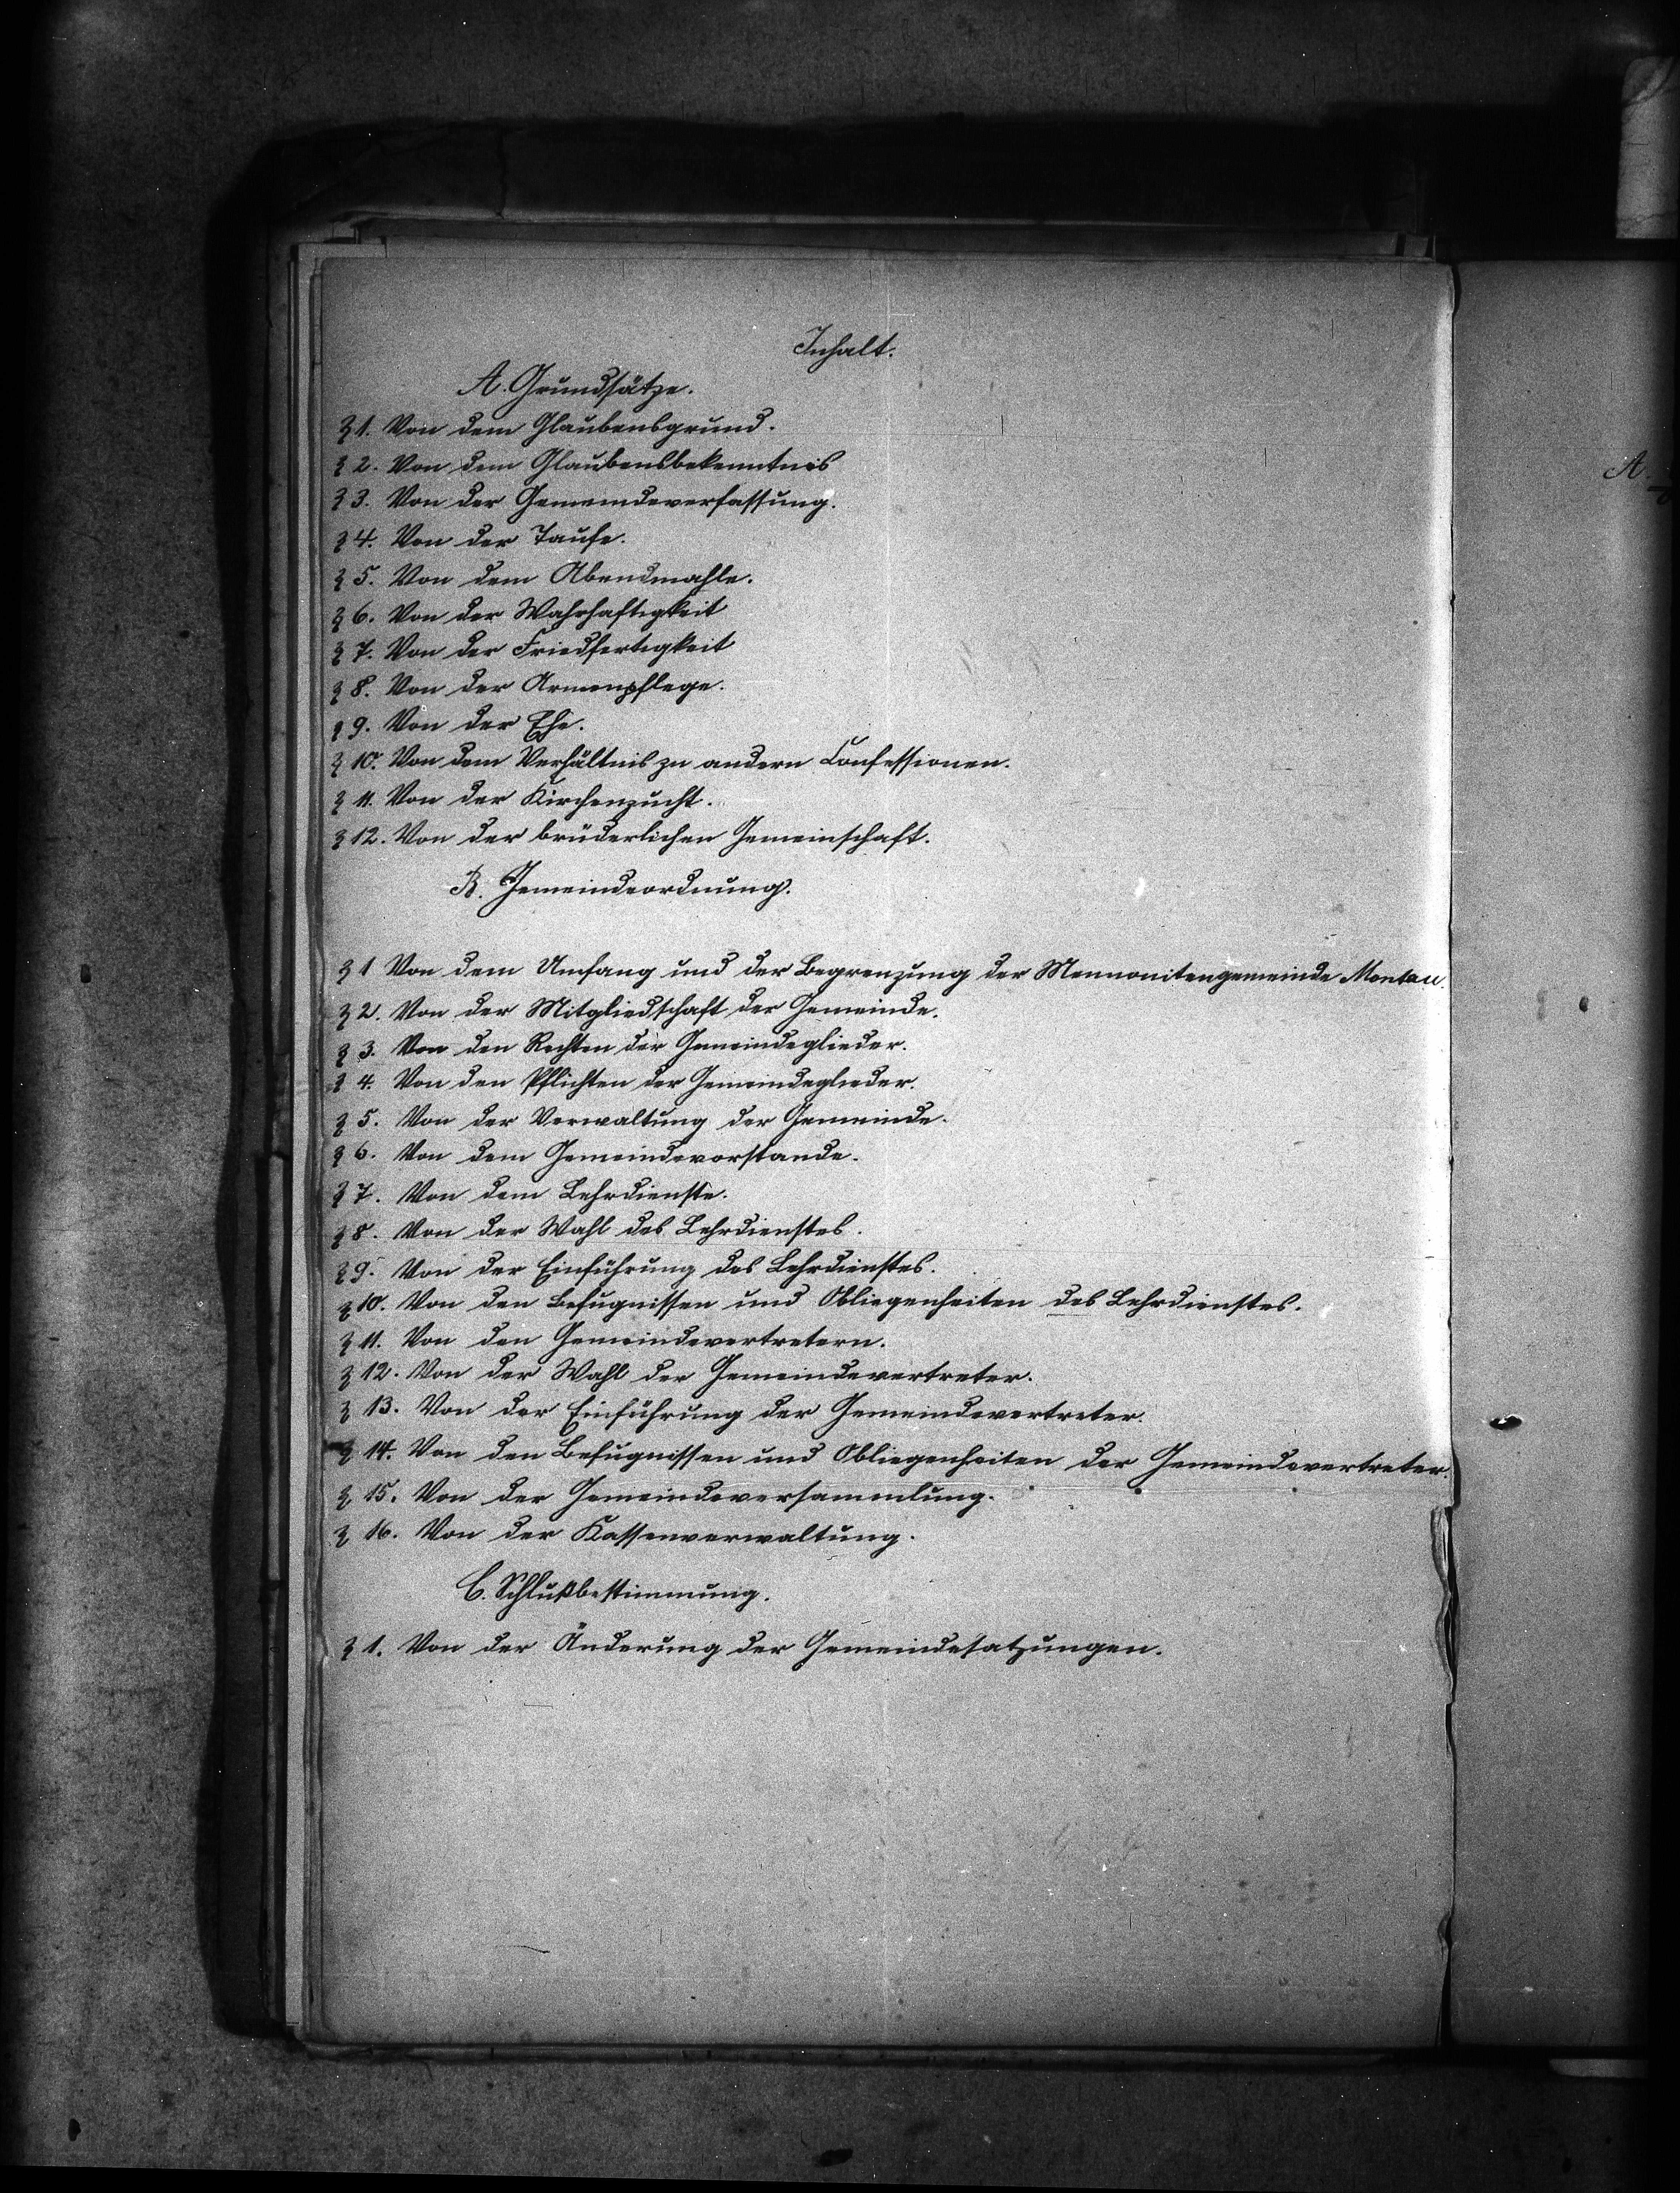 Inhalt.
A. Grundsätze.
§ 1. Von dem Glaubensgrund.
§ 2. Von dem Glaubensbekenntnis
§ 3. Von der Gemeindeverfassung.
§ 4. Von der Taufe.
§ 5. Von dem Abendmahle.
§ 6. Von der Wahrhaftigkeit
§ 7. Von der Friedfertigkeit
§ 8. Von der Armenpflege.
§ 9. Von der Ehe.
§ 10. Von dem Verhältnis zu andern Confessionen.
§ 11. Von der Kirchenzucht.
§ 12. Von der brüderlichen Gemeinschaft.
B. Gemeindeordnung.
§ 1 Von dem Umfang und der Begrenzung der Mennonitengemeinde Montau.
§ 2. Von der Mitgliedschaft der Gemeinde.
§ 3. Von den Rechten der Gemeindeglieder.
§ 4. Von den Pflichten der Gemeindeglieder.
§ 5. Von der Verwaltung der Gemeinde.
§ 6. Von dem Gemeindevorstande.
§ 7. Von dem Lehrdienste.
§ 8. Von der Wahl des Lehrdienstes.
§ 9. Von der Einführung des Lehrdienstes.
§ 10. Von den Befugnissen und Obliegenheiten des Lehrdienstes.
§ 11. Von den Gemeindevertretern.
§ 12. Von der Wahl der Gemeindevertreter.
§ 13. Von der Einführung der Gemeindevertreter.
§ 14. Von den Befugnissen und Obliegenheiten der Gemeindevertreter.
§ 15. Von der Gemeindeversammlung.
§ 16. Von der Kassenverwaltung.
C. Schlußbestimmung.
§ 1. Von der Änderung der Gemeindesatzungen.
A.